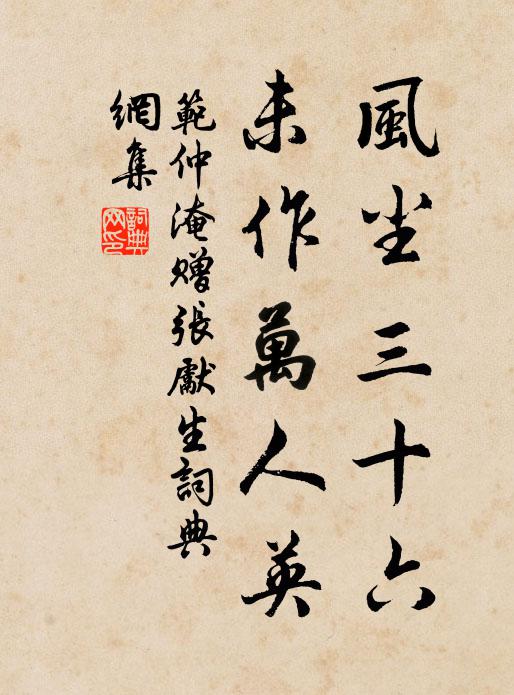 風尘三十六
未作萬人英
範仲淹贈張獻生詞典
網集
詞典
网印